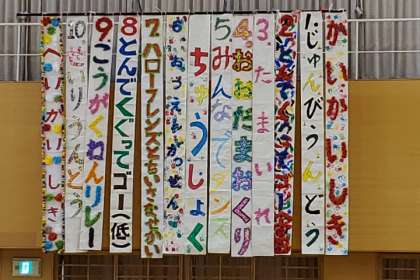 かいかいしき
1じゅんびうんどう
2
3たまいれ
4おおだまおくり
5みんなでダンス
ちゅうしょく
6おうえんがっせん
7ハローフレンズ
8とんでくぐってゴー(低)
9こうがくねんリレー
10せいりうんどう
へいかいしき